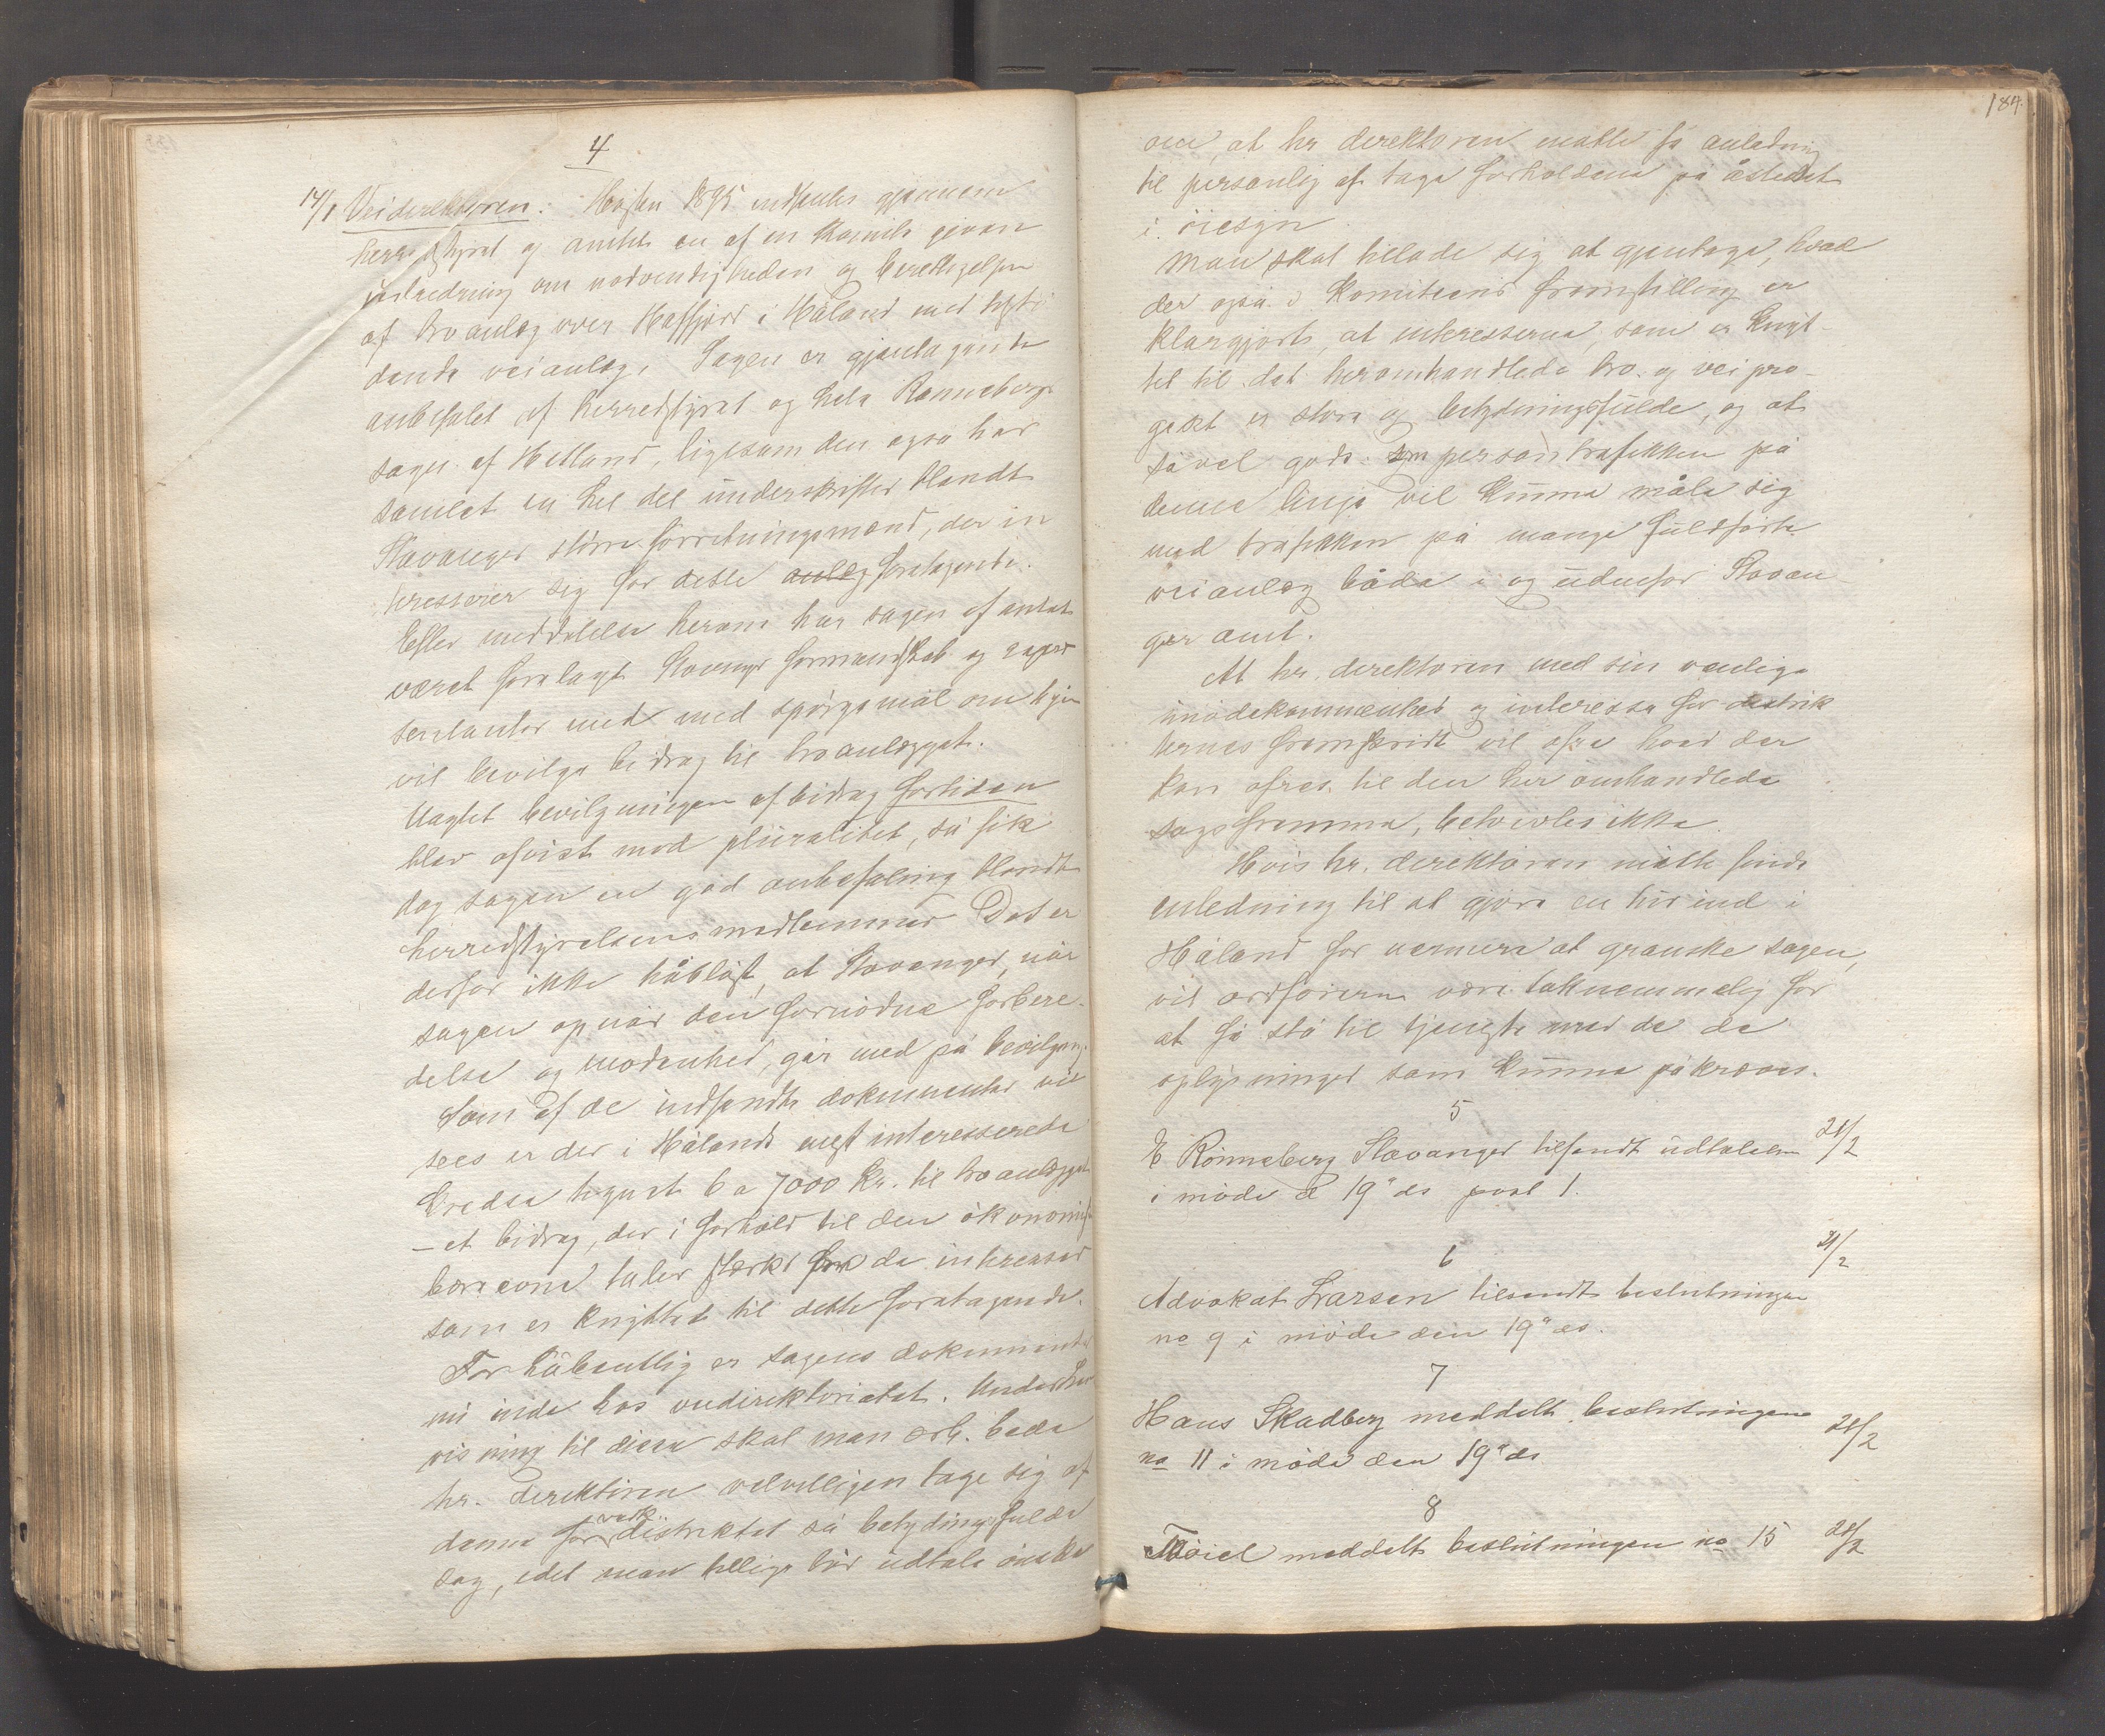 4
14/1 Veidirektøren: Høsten 1895 indsendtes gjennem
herredsstyret og amtet en af en komite given
udredning om nødvendigheden og berettigelsen
af broanlæg over Hafsfjord i Håland med tilstø-
dende veianlæg. Sagen er gjentagende
anbefalet af herredsstyret og hele Rønneberg
sogn af Hetland, ligesom den også har
samlet en hel del underskrifter blandt
Stavanger større forretningsmænd, der in
teresserer sig for dette anlæg foretagende.
Efter meddelelse herom har sagen af amtet
været forelagt Stavanger formandskab og repræ
sentanter med med spørgsmål om byen
vil bevilge bidrag til broanlægget.
Uagtet bevilgningen af bidrag fortiden
blev afvist mod pluralitet, så fik
dog sagen en god anbefaling blandt
herredsstyrelsens medlemmer. Det er
derfor ikke håbløst, at Stavanger, når
sagen opnår den fornødne forbere-
delse og modenhed, går med på bevilgning.
Som af de indsendte dokumenter vil
sees er der i Hålands mest interesserede
kredse tegnet 6 a 7000 kr. til broanlægget
– et bidrag, der i forhold til den økonomiske
bæreevne taler stærkt for de interesser
som er knyttet til dette foretagende.
Forhåbentlig er sagens dokumenter
nu inde hos veidirektoriatet. Under hen
visning til disse skal man ærb. bede
hr. direktøren velvilligen tage sig af
denne for vort distriktet så betydningsfulde
sag, idet man tillige bør udtale ønske
184.
om, at hr direktøren måtte få anledning
til personlig at tage forholdene på åstedet
i øiesyn.
Man skal tillade sig at gjentage, hvad
der også i komiteens fremstilling er
klargjort, at interesserne, som er knyt-
tet til det heromhandlede bro- og veipro-
gekt er store og betydningsfulde, og at
såvel gods- som persontrafikken på
denne linje vil kunne måle sig
med trafikken på mange fuldførte
veianlæg både i og udenfor Stavan
ger amt.
At hr. direktøren med sin venlige
imødekommenhed og interesse for distrik
ternes fremskridt vil ofre hvad der
kan ofres til den her omhandlede
sags fremme, betvivles ikke.
Hvis hr. direktøren måtte finde
anledning til at gjøre en tur ind i
Håland for nærmere at granske sagen,
vil ordføreren være taknemmelig for
at få stå til tjeneste med de de
oplysninger som kunne påkræves.
5
E Rønneberg Stavanger tilsendt udtalelsen 21/2
i møde d 19" ds post 1.
6 21/2
Advokat Larsen tilsendt beslutningen
no 9 i møde den 19" ds.
7
Hans Skadberg meddelt beslutningen 21/2
no 11 i møde den 19" ds
8
Tøiel meddelt beslutningen no 15 21/2